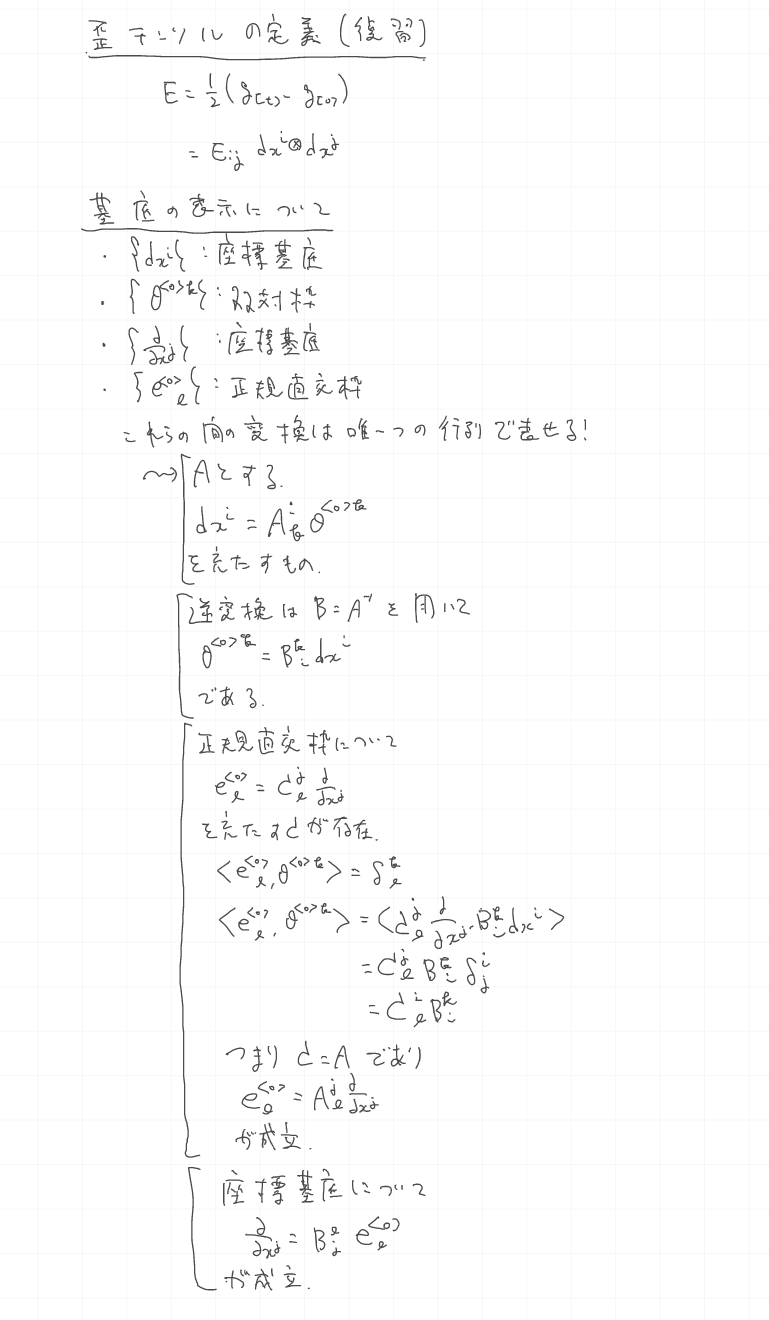 歪テンソルの定義(復習)
E = 1/2 (g[t] - g[0])
= Eij dx^i ⊗ dx^j
基底の表示について
・{dx^i} : 座標基底
・{θ^<0>k} : 双対枠
・{∂/∂x^j} : 座標基底
・{e^<0>_l} : 正規直交枠
これらの間の変換は唯一つの行列で表せる!
⇝ Aとする.
dx^i = A^i_k θ^<0>k
を充たすもの.
逆変換は B = A^-1 を用いて
θ^<0>k = B^k_i dx^i
である.
正規直交枠について
e^<0>_l = C^j_l ∂/∂x^j
を充たすCが存在.
<e^<0>_l, θ^<0>k> = δ^k_l
<e^<0>_l, θ^<0>k> = <C^j_l ∂/∂x^j, B^k_i dx^i>
= C^j_l B^k_i δ^i_j
= C^i_l B^k_i
つまり C = A であり
e^<0>_l = A^j_l ∂/∂x^j
が成立.
座標基底について
∂/∂x^j = B^l_j e^<0>_l
が成立.